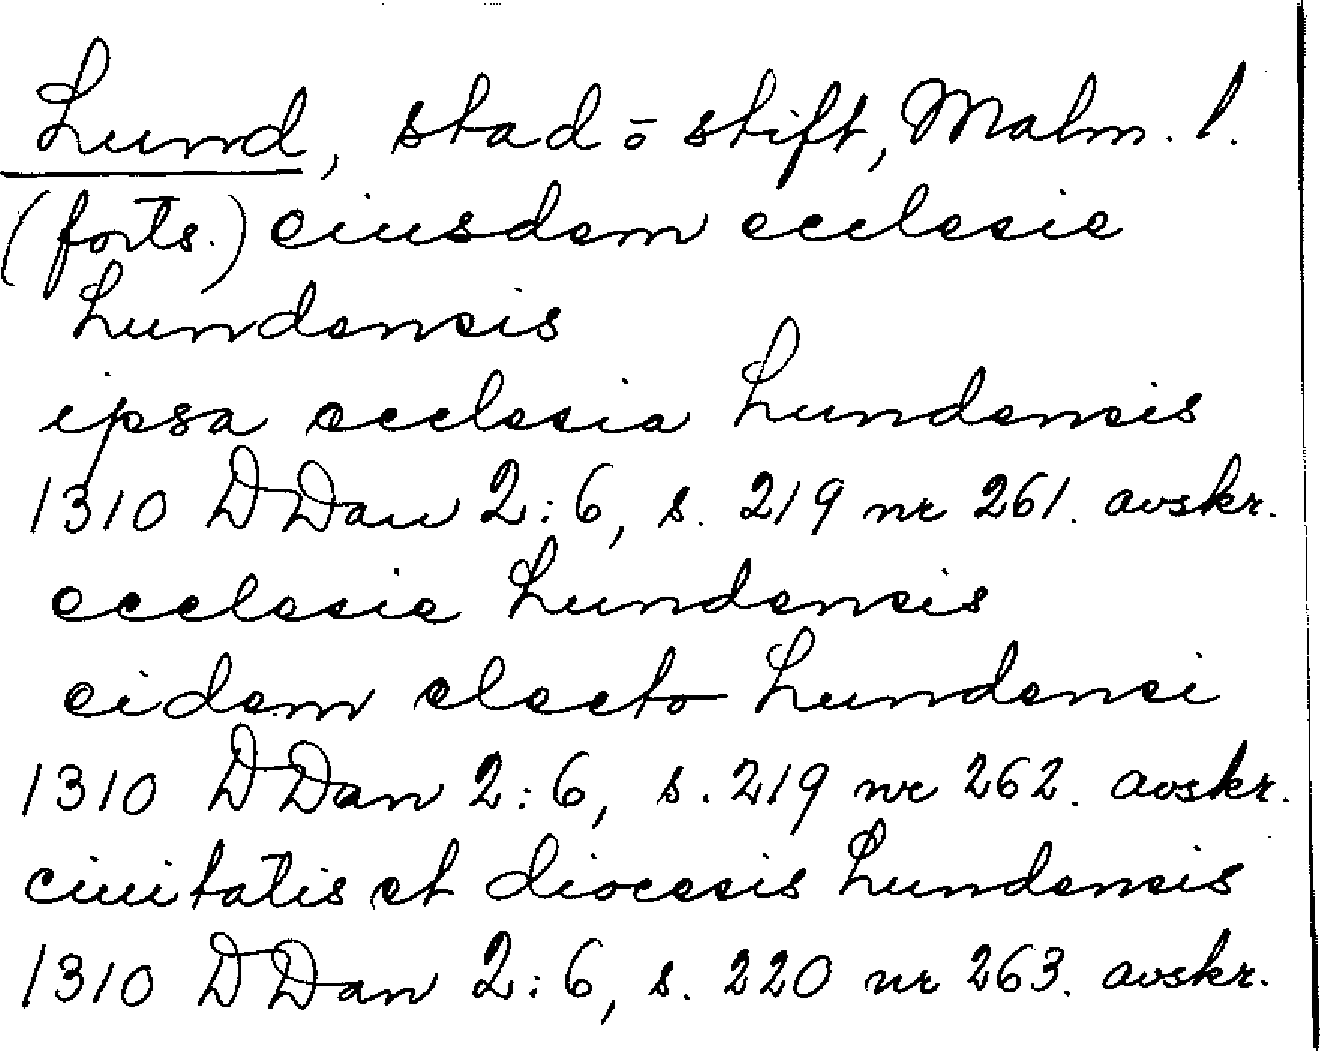 Lund, stad o stift, Malm. l.
(forts.) eiusdem ecclesie
Lundensis
ipsa ecclesia Lundensis
1310 DDan 2:6, s. 219 nr 261. avskr.
ecclesie Lundensis
eidem electo Lundensi
1310 DDan 2:6, s. 219 nr 262. avskr.
ciuitatis et diocesis Lundensis
1310 DDan 2:6, s. 220 nr 263. avskr.